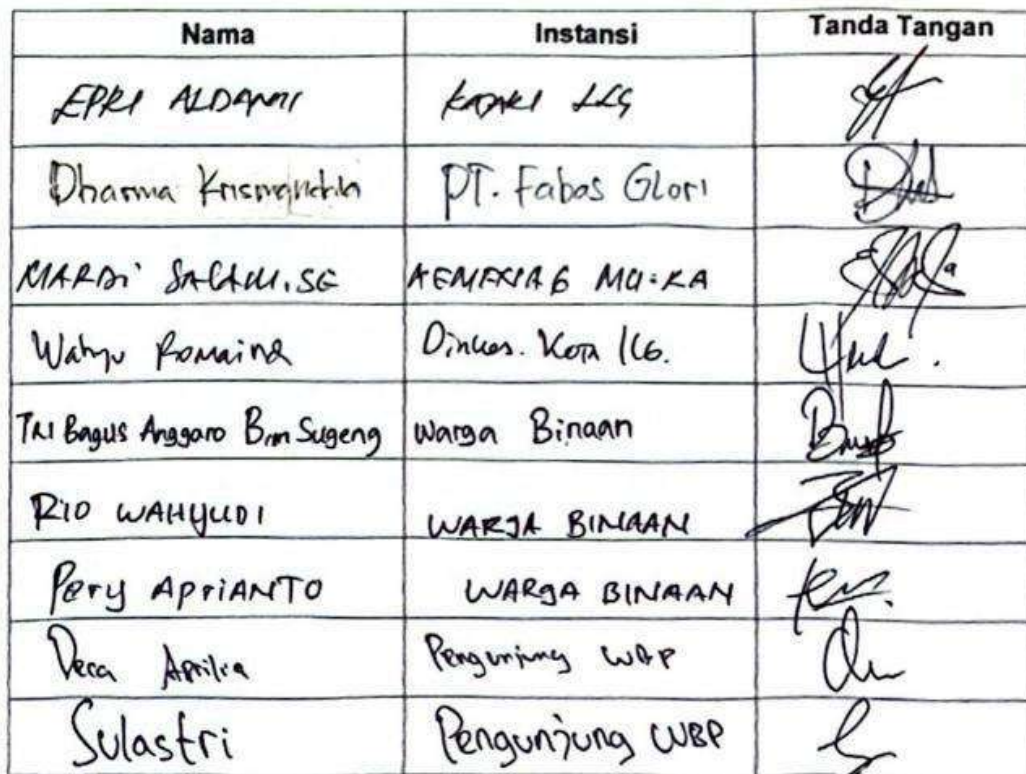 Nama Instansi Tanda Tangan
EPRI ALDAMI LLG
Dharma PT. Fabas Glori
MARDI SALAM.SE MURA
Wahyu Romaina Dinkes. Kota LLG.
TRI Bagus Anggaro Bin Sugeng Warga Binaan
RIO WAHYUDI WARGA BINAAN
Pery APriANTO WARGA BINAAN
Deca Aprilia Pengunjung WBP
Sulastri Pengunjung WBP